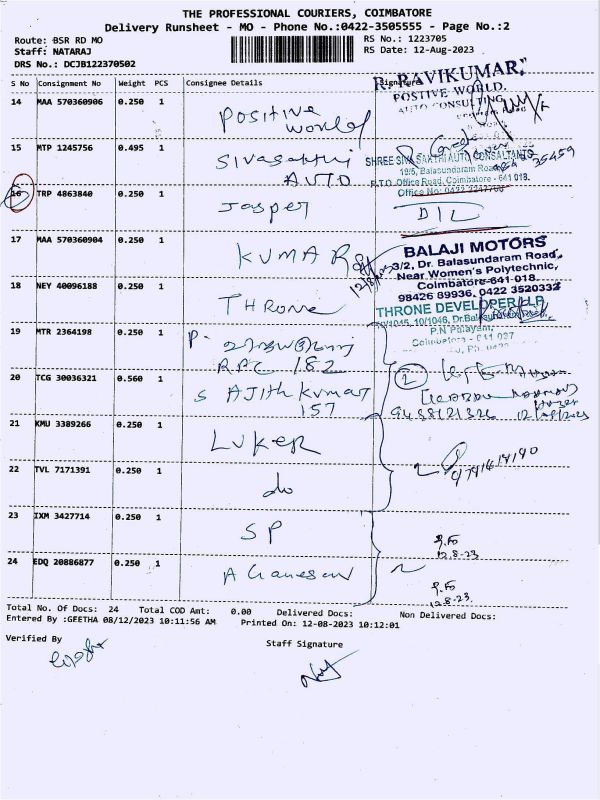 THE PROFESSIONAL COURIERS, COIMBATORE
Delivery Runsheet - MO - Phone No.:0422-3505555 - Page No.:2
Route: BSR RD MO
RS No.: 1223705
Staff: NATARAJ
RS Date: 12-Aug-2023
DRS No.: DCJB122370502
S No Consignment No Weight PCS Consignee Details Signature
R. RAVIKUMAR,
POSTIVE WORLD.
AUTO CONSULTING
14 MAA 570360906 0.250 1 Positive world
15 MTP 1245756 0.495 1 Sivasakthi AUTO
SHREE SIVA SAKTHI AUTO CONSULTANTS
18/5, Balasundaram Road
R.T.O. Office Road, Coimbatore - 641 018.
16 TRP 4863840 0.250 1 Jasper
DIL
17 MAA 570360904 0.250 1 KUMAR
BALAJI MOTORS
3/2, Dr. Balasundaram Road,
Near Women's Polytechnic,
Coimbatore-641 018.
98426 89936, 0422 3520333
18 NEY 40096188 0.250 1 THRONE
THRONE DEVELOPER LLP
P.N Palayam,
19 MTR 2364198 0.250 1 P.
R.P.C 182
20 TCG 30036321 0.560 1 S AJITH KUMAR
157
21 KMU 3389266 0.250 1 LUKER
22 TVL 7171391 0.250 1 do
23 IXM 3427714 0.250 1 SP
12.8-23
24 EDQ 20886877 0.250 1 A Ganesan
12.8-23
Total No. Of Docs: 24 Total COD Amt: 0.00 Delivered Docs: Non Delivered Docs:
Entered By :GEETHA 08/12/2023 10:11:56 AM Printed On: 12-08-2023 10:12:01
Verified By
Staff Signature